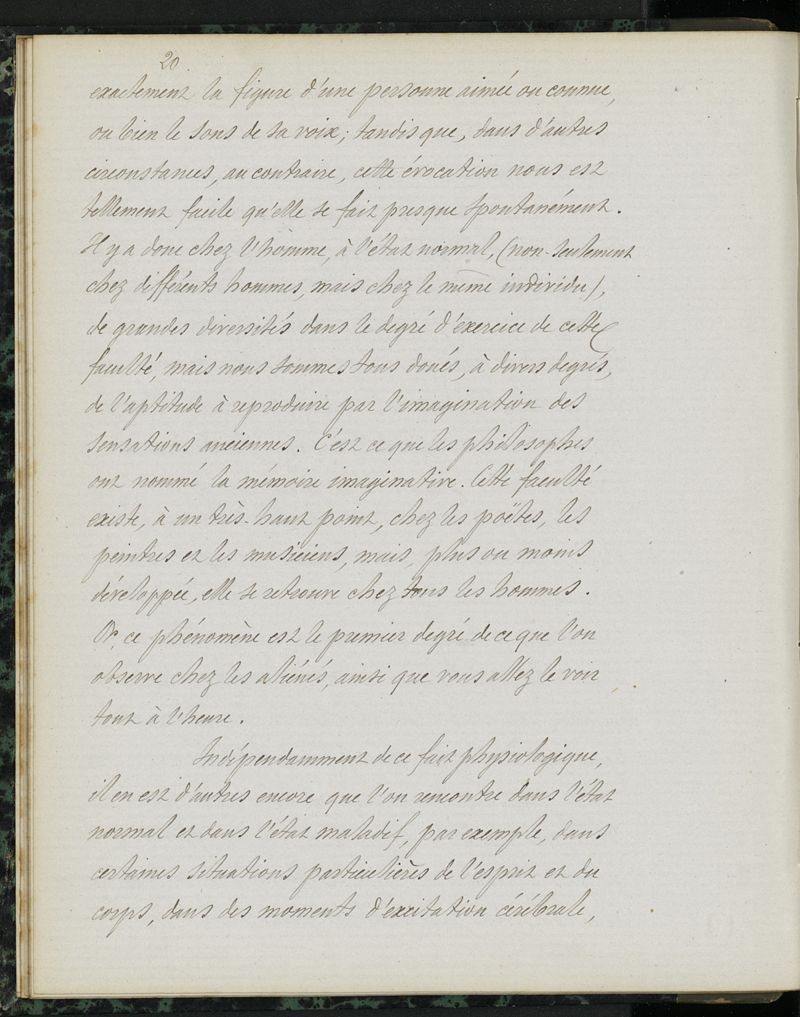 20
exactement la figure d'une personne aimée ou connue,
ou bien le sons de sa voix ; tandis que, dans d'autres
circonstances, au contraire, cette évocation nous est
tellement facile qu'elle se fait presque spontanément.
Il y a donc chez l'homme, à l'état normal, (non-seulement
chez différents hommes, mais chez le même individu),
de grandes diversités dans le degré d'exercice de cette
faculté, mais nous sommes tous doués, à divers degrés,
de l'aptitude à reproduire par l'imagination des
sensations anciennes. C'est ce que les philosophes
ont nommé la mémoire imaginative. Cette faculté
existe, à un très-haut point, chez les poëtes, les
peintres et les musiciens, mais, plus ou moins
développée, elle se retrouve chez tous les hommes.
Or, ce phénomène est le premier degré de ce que l'on
observe chez les aliénés, ainsi que vous allez le voir
tout à l'heure.
Indépendamment de ce fait physiologique,
il en est d'autres encore que l'on rencontre dans l'état
normal et dans l'état maladif, par exemple, dans
certaines situations particulières de l'esprit et du
corps, dans des moments d'excitation cérébrale,